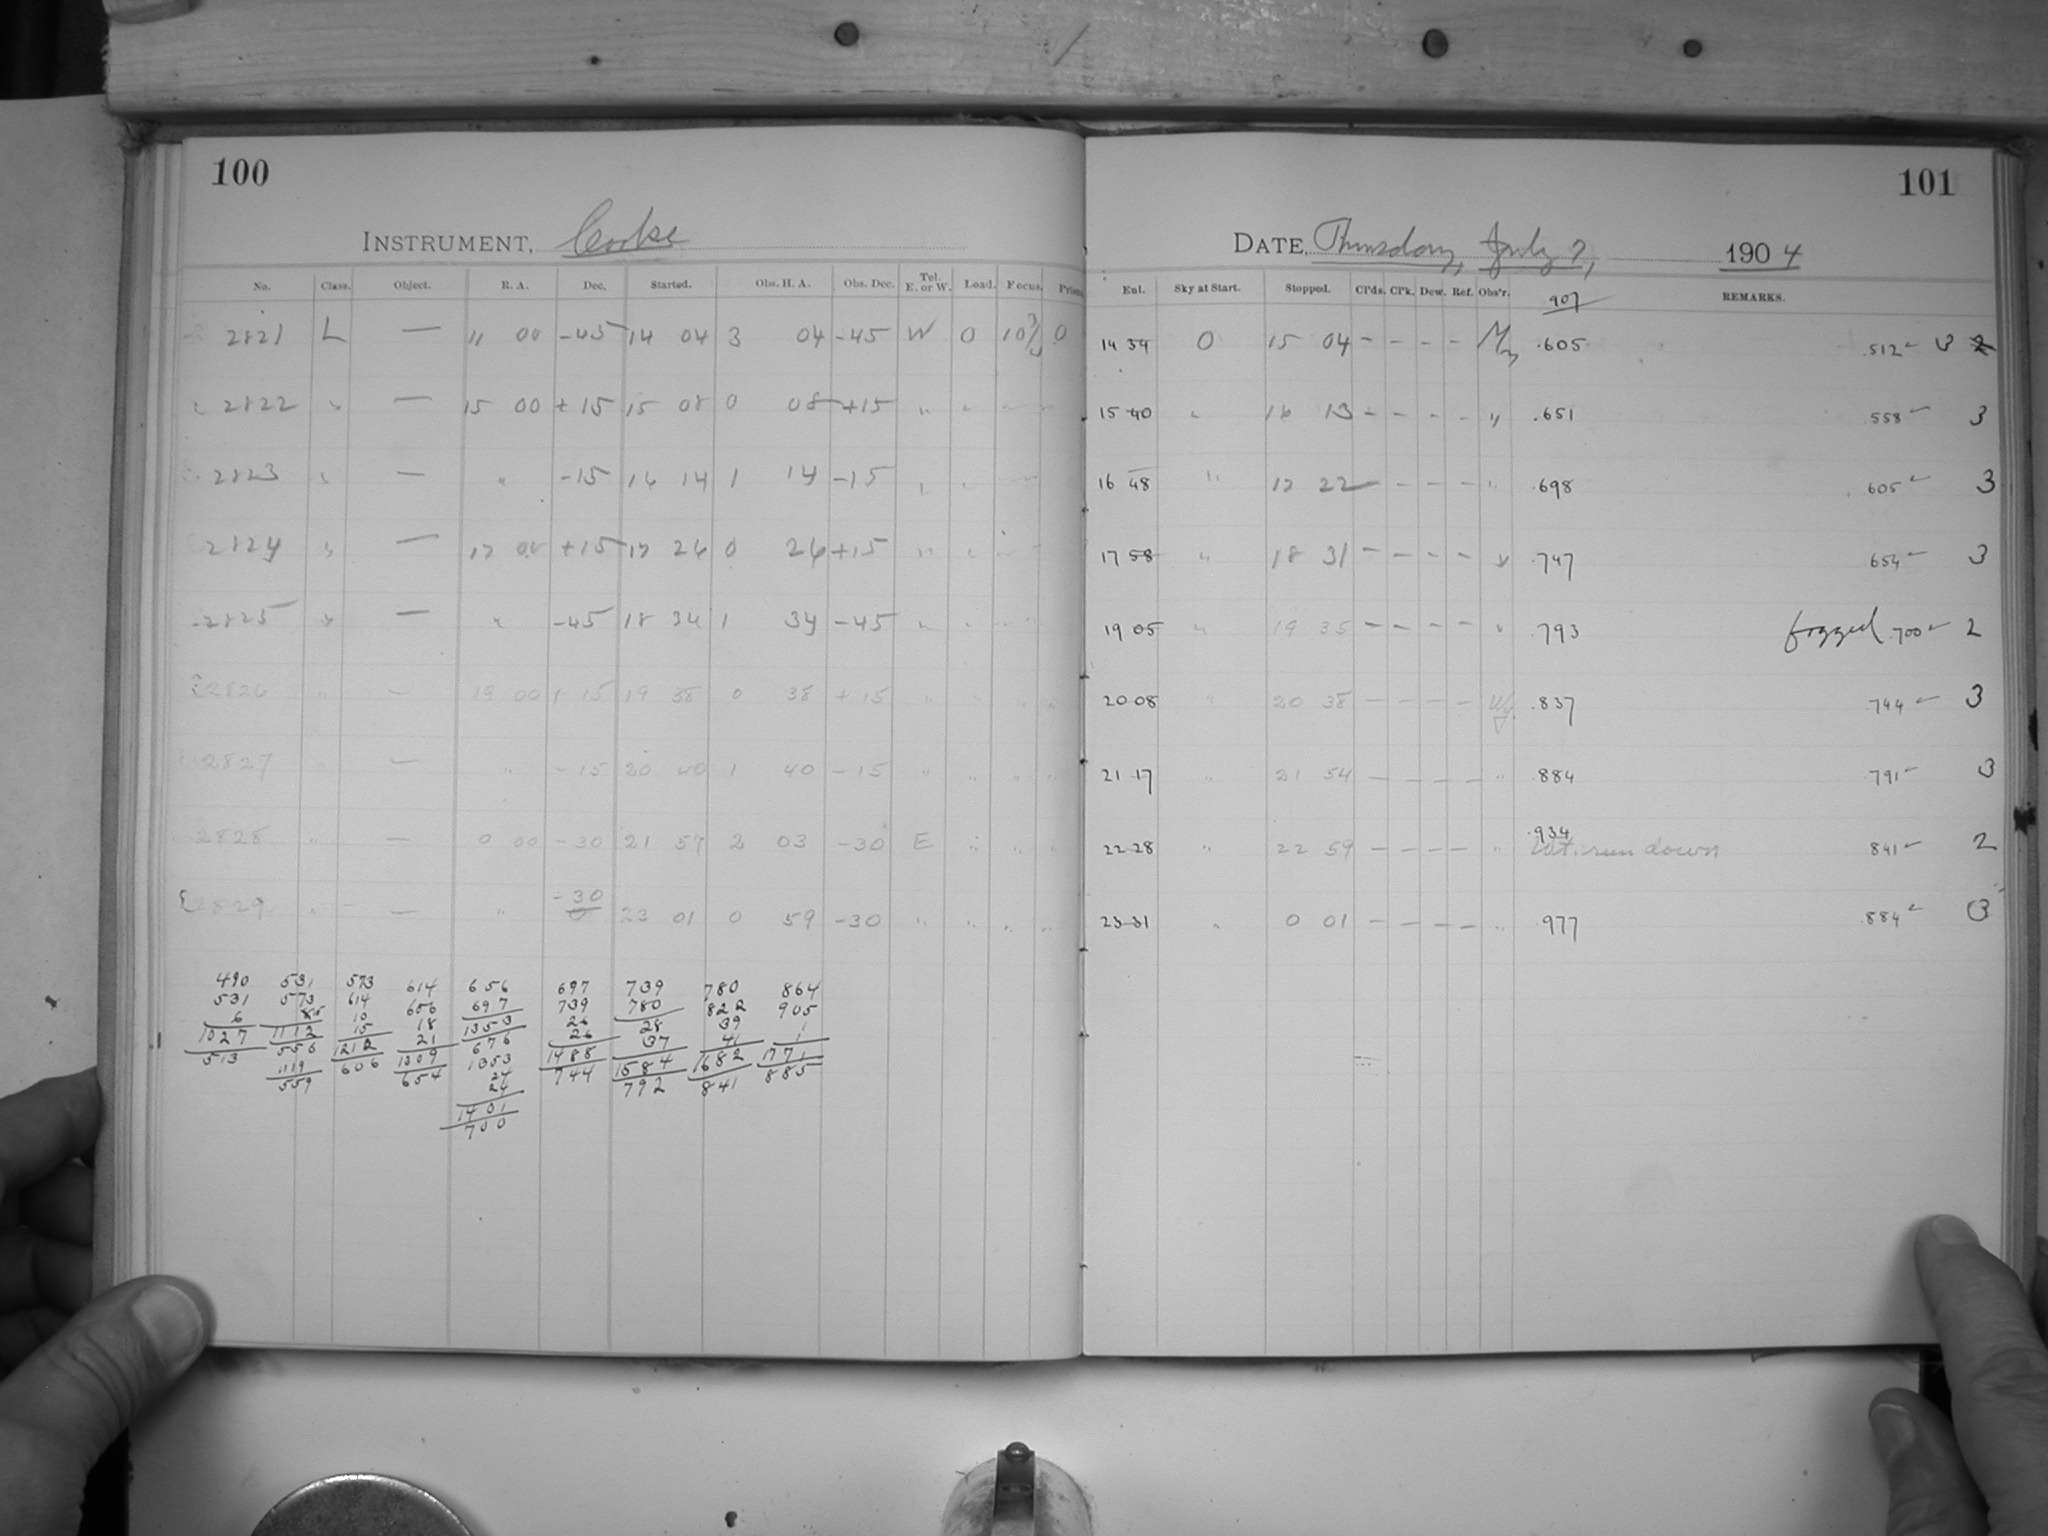 100
INSTRUMENT, Cooke
No. Class. Object. R. A. Dec. Started. Obs. H. A. Obs. Dec. Tel. E. or W. Load. Focus.
2821 L — 11 00 -45 14 04 3 04 -45 W 0 10 3/4 0
2822 " — 15 00 +15 15 08 0 08 +15 " " " "
2823 " — " -15 16 14 1 14 -15 " " "
2824 " — 17 00 +15 17 26 0 26 +15 " " "
2825 " — " -45 18 34 1 34 -45 " " "
2826 " — 19 00 +15 19 38 0 38 +15 " " " "
2827 " — " -15 20 40 1 40 -15 " " " "
2828 " — 0 00 -30 21 57 2 03 -30 E " " "
2829 " — " -30 23 01 0 59 -30 " " " "
490 531 573 614 656 697 739 780 864
531 573 614 656 697 739 780 822 905
6 10 18 1353 26 28 39 1
1027 1112 15 21 676 26 37 41 1
513 556 1212 1309 1353 1488 1584 1682 1771
1119 606 654 24 744 792 841 885
559 24
1401
700
101
DATE, Thursday, July 7, 1904
Enl. Sky at Start. Stopped. Cl'ds. Cl'k. Dew. Ref. Obs'r. REMARKS.
907
14 34 0 15 04 - - - - .605 .512
15 40 " 16 13 - - - - " .651 .558 3
16 48 " 17 22 - - - - " .698 .605 3
17 58 " 18 31 - - - - " .747 .654 3
19 05 " 19 35 - - - - " .793 fogged .700 2
20 08 " 20 38 - - - - .837 .744 3
21 17 " 21 54 - - - - " .884 .791 3
22 28 " 22 59 - - - - " .934 run down .841 2
23 31 " 0 01 - - - - " .977 .884 3